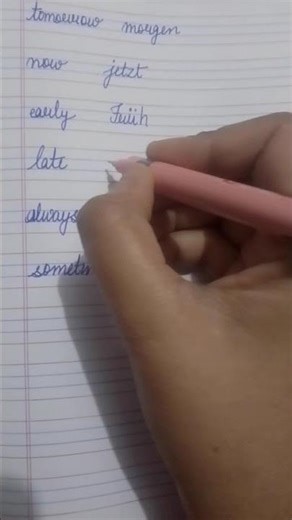 tomorrow morgen
now jetzt
early Früh
late
always
someth